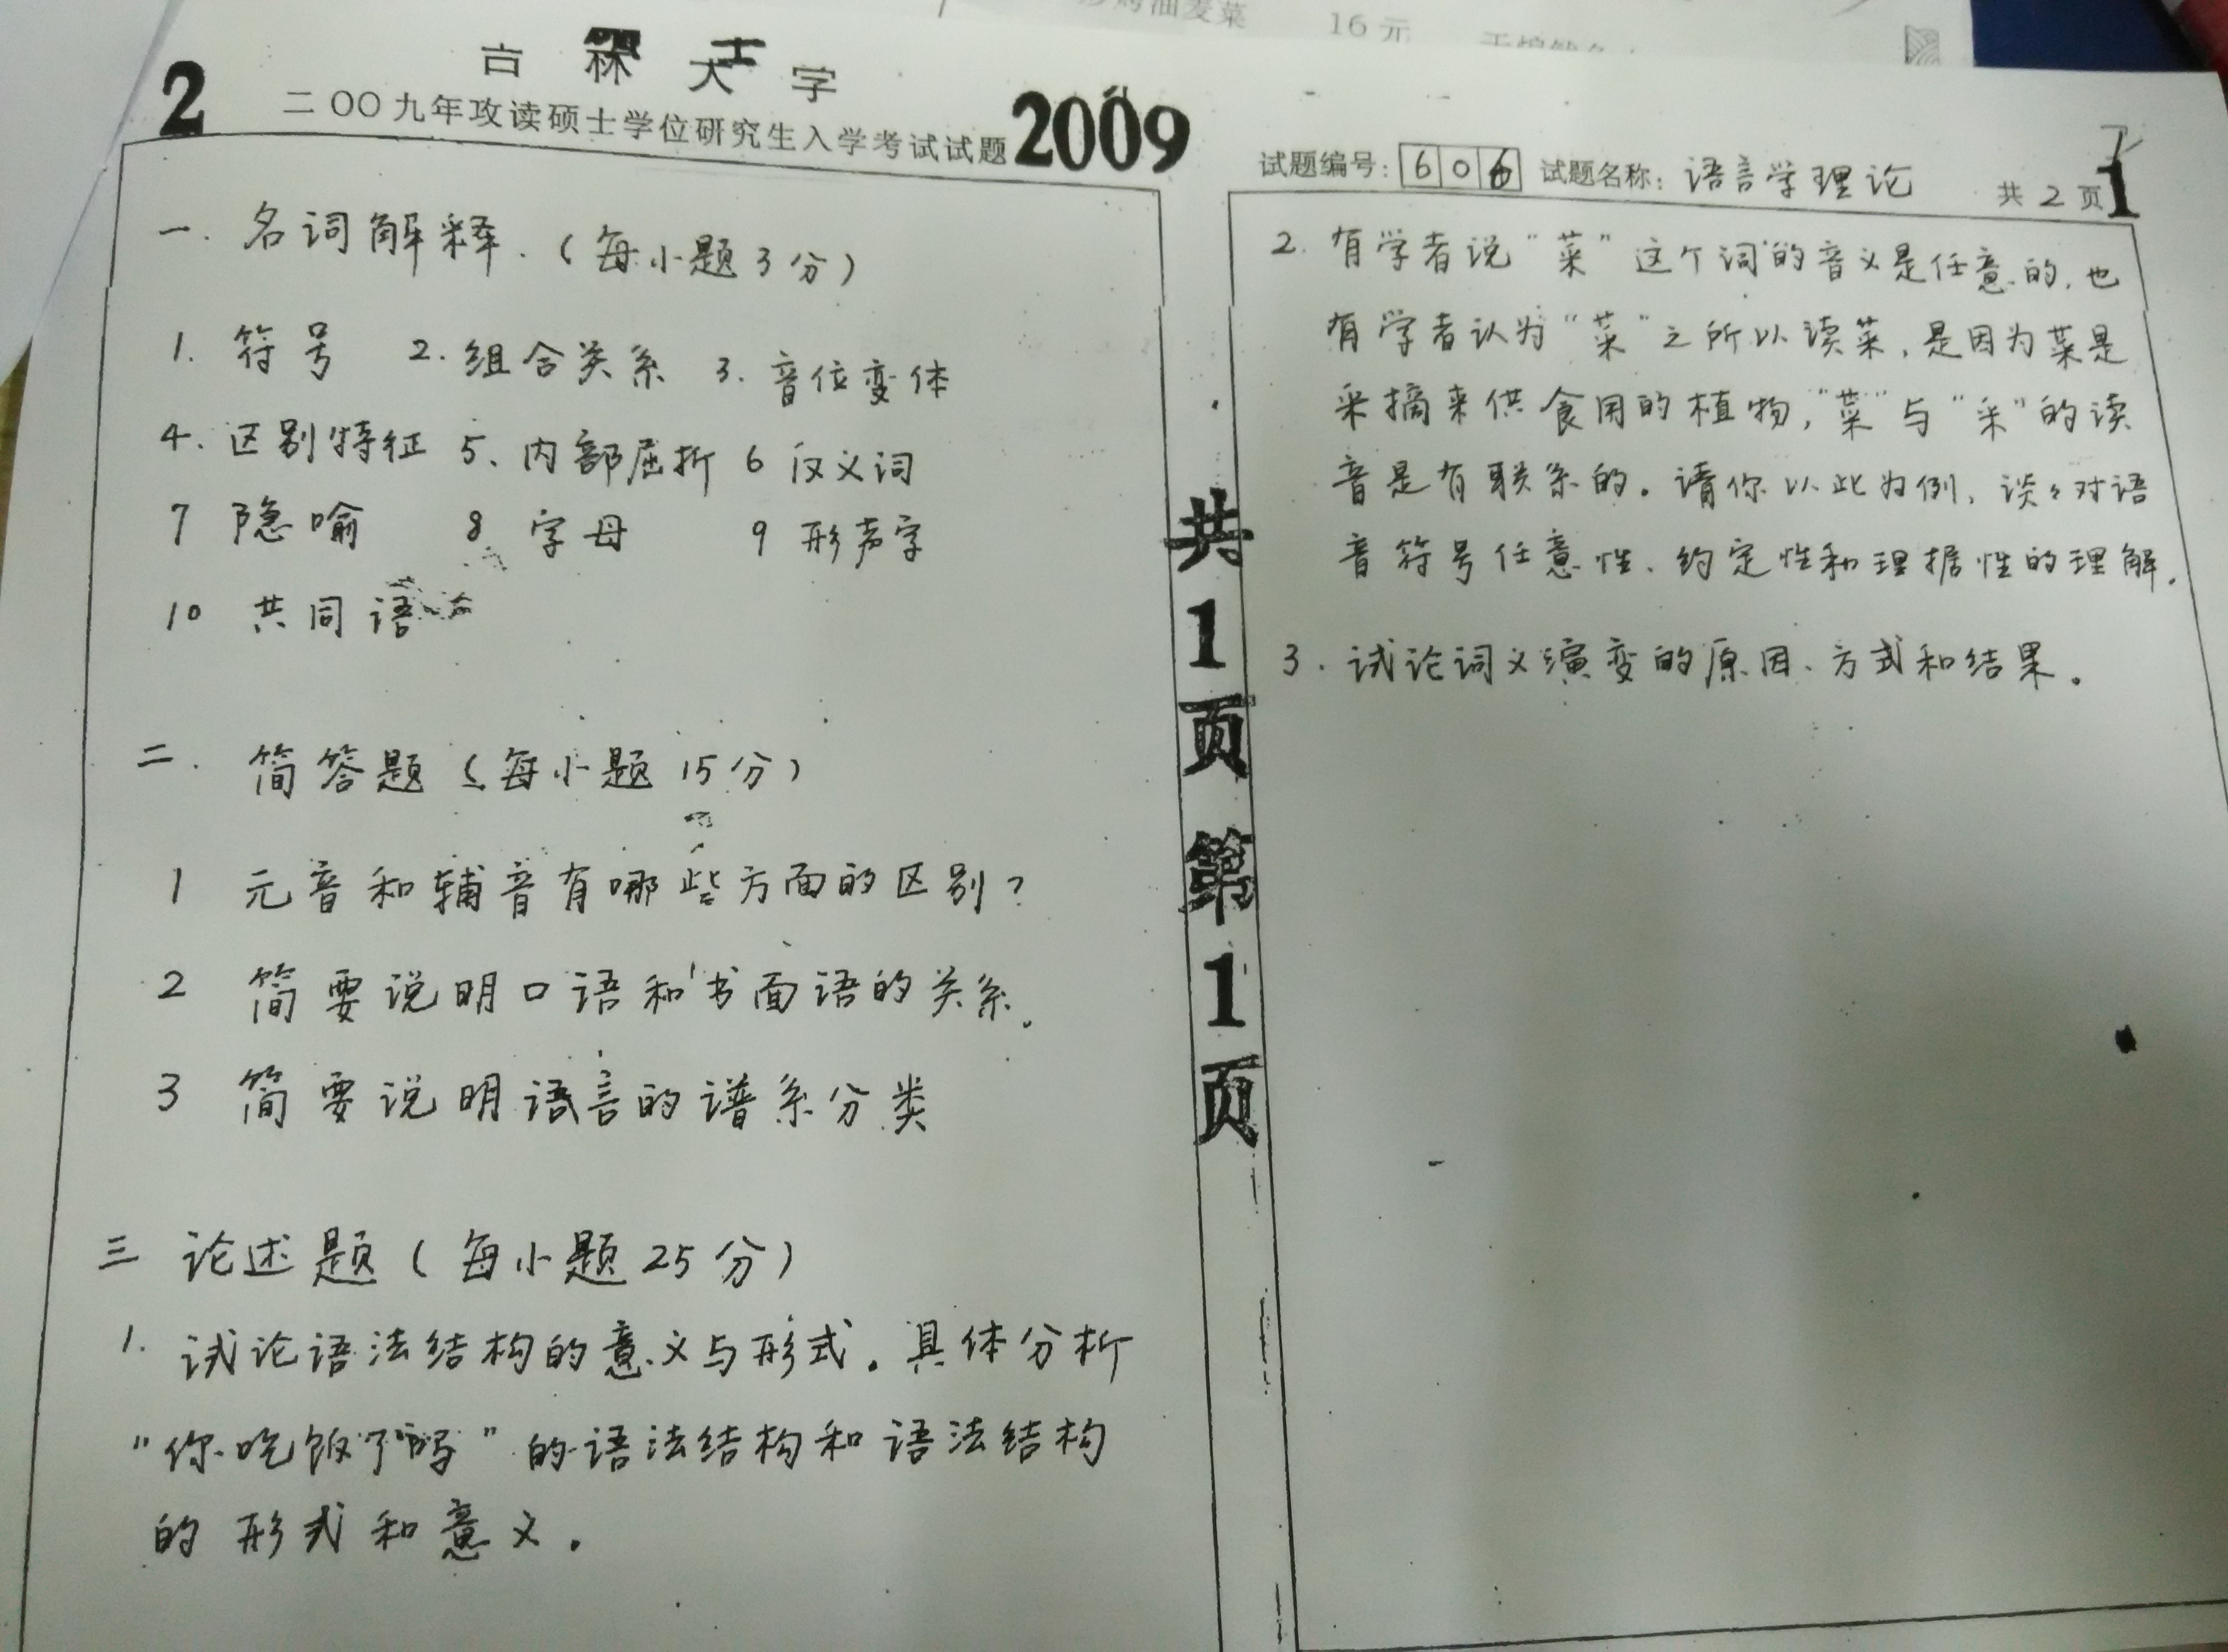 16元
吉林大学
2
二〇〇九年攻读硕士学位研究生入学考试试题
2009
一.名词解释.(每小题3分)
1. 符号 2.组合关系 3.音位变体
4.区别特征 5、内部屈折 6 反义词
7 隐喻 8 字母 9 形声字
10 共同语
二. 简答题(每小题15分)
1 元音和辅音有哪些方面的区别?
2 简要说明口语和书面语的关系.
3 简要说明语言的谱系分类
三 论述题(每小题25分)
1. 试论语法结构的意义与形式。具体分析
"你吃饭了吗"的语法结构和语法结构
的形式和意义。
共1页 第1页
试题编号: 606 试题名称: 语言学理论 共2页
1
2. 有学者说"菜"这个词的音义是任意的,也
有学者认为"菜"之所以读菜,是因为菜是
采摘来供食用的植物,"菜"与"采"的读
音是有联系的。请你以此为例,谈々对语
音符号任意性、约定性和理据性的理解.
3. 试论词义演变的原因、方式和结果。